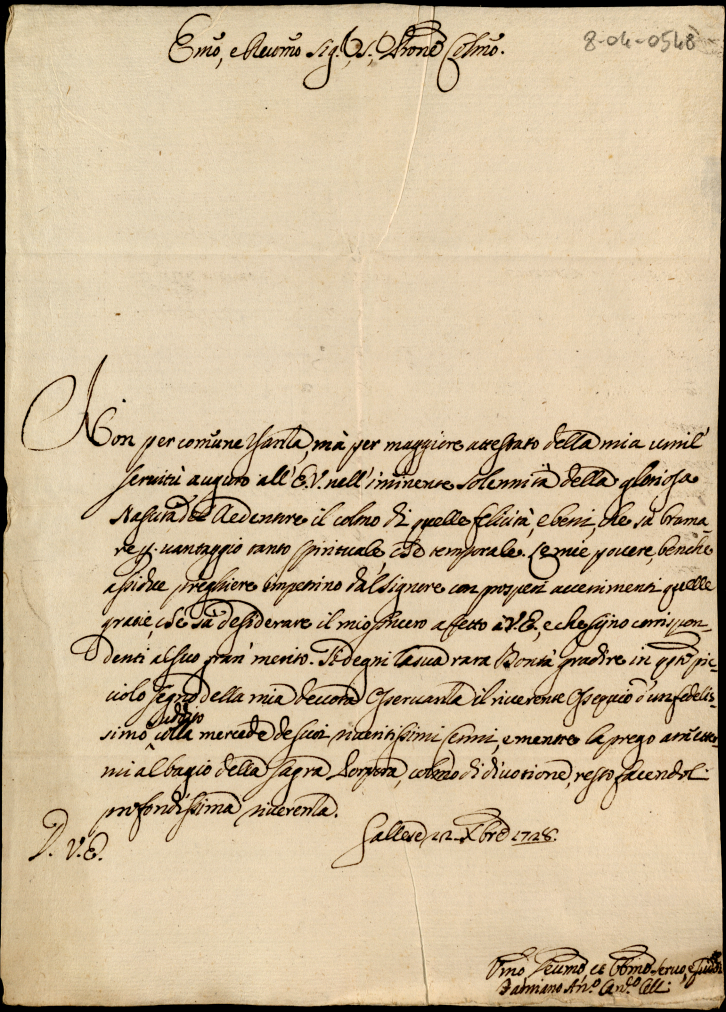 Emo, e Reumo Sig.r, S., Prone Colmo.
8-04-0548
Non per comune Usanza, mà per maggiore attestato della mia umil'
seruitù auguro all'E.V. nell'iminente solennità della gloriosa
Nascita del Redentore il colmo di quelle felicità, e beni, che sà brama-
re p. vantaggio tanto spirituale che temporale. Le mie pouere, benche
assidue preghiere impetrino dal Signore con prosperi auuenimenti quelle
grazie, che sà desiderare il mio sincero affetto à V.E., e che sijno corrispon-
denti al suo gran' merito. Si degni la sua rara Bontà gradire in qsto pic-
ciolo segno della mia deuota Osseruanza il riuerente Ossequio d'un fedelis-
simo suddito colla mercede de suoi riueritissimi cenni, e mentre la prego
mi al bagio della sagra Porpora, colmo di diuotione, resto facendol:
profondissima riuerenza.
D. V.E.
Gallese 22 Xbre 1728.
Vmo, Deumo, et Obbmo Seruo, e
Damiano Cell: